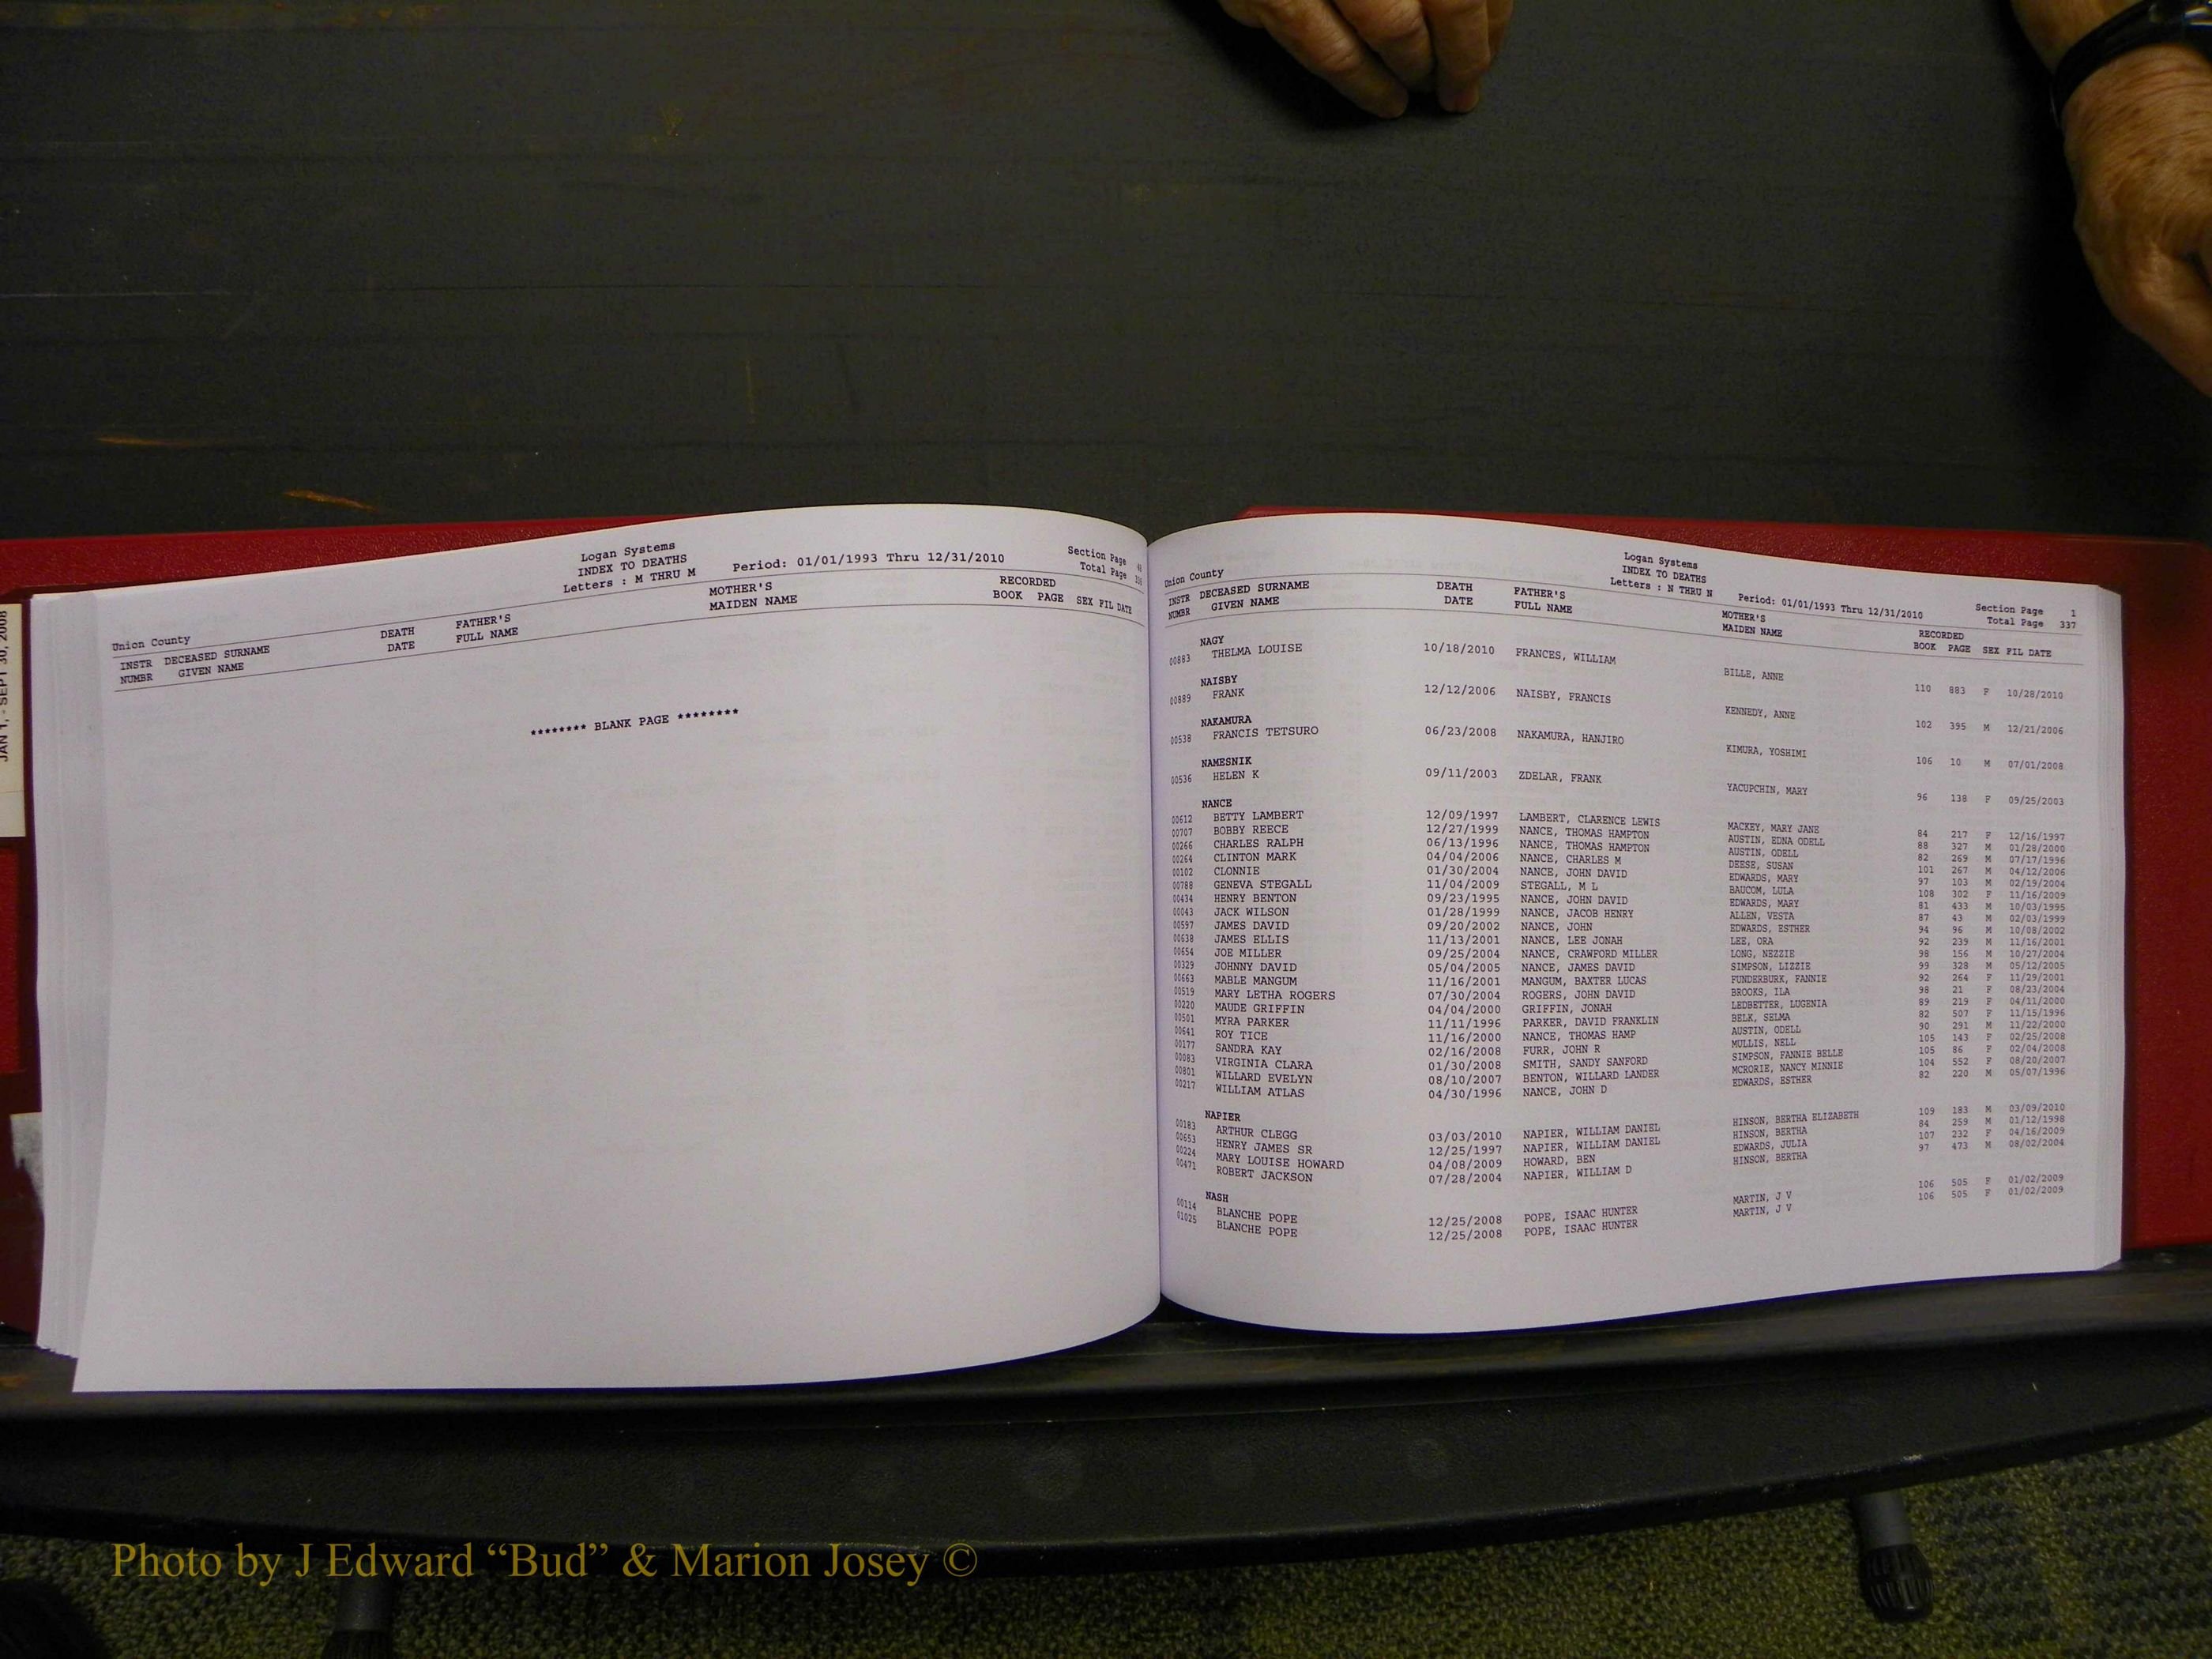 JAN 1, - SEPT 30, 2008
Logan Systems
INDEX TO DEATHS
Letters : M THRU M Period: 01/01/1993 Thru 12/31/2010
Section Page
Total Page
Union County
INSTR DECEASED SURNAME DEATH FATHER'S MOTHER'S RECORDED
NUMBR GIVEN NAME DATE FULL NAME MAIDEN NAME BOOK PAGE SEX FIL DATE
******** BLANK PAGE ********
Logan Systems
INDEX TO DEATHS
Letters : N THRU N Period: 01/01/1993 Thru 12/31/2010
Section Page 1
Total Page 337
Union County
INSTR DECEASED SURNAME DEATH FATHER'S MOTHER'S RECORDED
NUMBR GIVEN NAME DATE FULL NAME MAIDEN NAME BOOK PAGE SEX FIL DATE
NAGY
00883 THELMA LOUISE 10/18/2010 FRANCES, WILLIAM BILLE, ANNE 110 883 F 10/28/2010
NAISBY
00889 FRANK 12/12/2006 NAISBY, FRANCIS KENNEDY, ANNE 102 395 M 12/21/2006
NAKAMURA
00538 FRANCIS TETSURO 06/23/2008 NAKAMURA, HANJIRO KIMURA, YOSHIMI 106 10 M 07/01/2008
NAMESNIK
00536 HELEN K 09/11/2003 ZDELAR, FRANK YACUPCHIN, MARY 96 138 F 09/25/2003
NANCE
00612 BETTY LAMBERT 12/09/1997 LAMBERT, CLARENCE LEWIS MACKEY, MARY JANE 84 217 F 12/16/1997
00707 BOBBY REECE 12/27/1999 NANCE, THOMAS HAMPTON AUSTIN, EDNA ODELL 88 327 M 01/28/2000
00266 CHARLES RALPH 06/13/1996 NANCE, THOMAS HAMPTON AUSTIN, ODELL 82 269 M 07/17/1996
00264 CLINTON MARK 04/04/2006 NANCE, CHARLES M DEESE, SUSAN 101 267 M 04/12/2006
00102 CLONNIE 01/30/2004 NANCE, JOHN DAVID EDWARDS, MARY 97 103 M 02/19/2004
00788 GENEVA STEGALL 11/04/2009 STEGALL, M L BAUCOM, LULA 108 302 F 11/16/2009
00434 HENRY BENTON 09/23/1995 NANCE, JOHN DAVID EDWARDS, MARY 81 433 M 10/03/1995
00043 JACK WILSON 01/28/1999 NANCE, JACOB HENRY ALLEN, VESTA 87 43 M 02/03/1999
00597 JAMES DAVID 09/20/2002 NANCE, JOHN EDWARDS, ESTHER 94 96 M 10/08/2002
00638 JAMES ELLIS 11/13/2001 NANCE, LEE JONAH LEE, ORA 92 239 M 11/16/2001
00654 JOE MILLER 09/25/2004 NANCE, CRAWFORD MILLER LONG, NEZZIE 98 156 M 10/27/2004
00329 JOHNNY DAVID 05/04/2005 NANCE, JAMES DAVID SIMPSON, LIZZIE 99 328 M 05/12/2005
00663 MABLE MANGUM 11/16/2001 MANGUM, BAXTER LUCAS FUNDERBURK, FANNIE 92 264 F 11/29/2001
00519 MARY LETHA ROGERS 07/30/2004 ROGERS, JOHN DAVID BROOKS, ILA 98 21 F 08/23/2004
00220 MAUDE GRIFFIN 04/04/2000 GRIFFIN, JONAH LEDBETTER, LUGENIA 89 219 F 04/11/2000
00501 MYRA PARKER 11/11/1996 PARKER, DAVID FRANKLIN BELK, SELMA 82 507 F 11/15/1996
00641 ROY TICE 11/16/2000 NANCE, THOMAS HAMP AUSTIN, ODELL 90 291 M 11/22/2000
00177 SANDRA KAY 02/16/2008 FURR, JOHN R MULLIS, NELL 105 143 F 02/25/2008
00083 VIRGINIA CLARA 01/30/2008 SMITH, SANDY SANFORD SIMPSON, FANNIE BELLE 105 86 F 02/04/2008
00801 WILLARD EVELYN 08/10/2007 BENTON, WILLARD LANDER MCRORIE, NANCY MINNIE 104 552 F 08/20/2007
00217 WILLIAM ATLAS 04/30/1996 NANCE, JOHN D EDWARDS, ESTHER 82 220 M 05/07/1996
NAPIER
00183 ARTHUR CLEGG 03/03/2010 NAPIER, WILLIAM DANIEL HINSON, BERTHA ELIZABETH 109 183 M 03/09/2010
00653 HENRY JAMES SR 12/25/1997 NAPIER, WILLIAM DANIEL HINSON, BERTHA 84 259 M 01/12/1998
00224 MARY LOUISE HOWARD 04/08/2009 HOWARD, BEN EDWARDS, JULIA 107 232 F 04/16/2009
00471 ROBERT JACKSON 07/28/2004 NAPIER, WILLIAM D HINSON, BERTHA 97 473 M 08/02/2004
NASH
00114 BLANCHE POPE 12/25/2008 POPE, ISAAC HUNTER MARTIN, J V 106 505 F 01/02/2009
01025 BLANCHE POPE 12/25/2008 POPE, ISAAC HUNTER MARTIN, J V 106 505 F 01/02/2009
Photo by J Edward “Bud” & Marion Josey ©